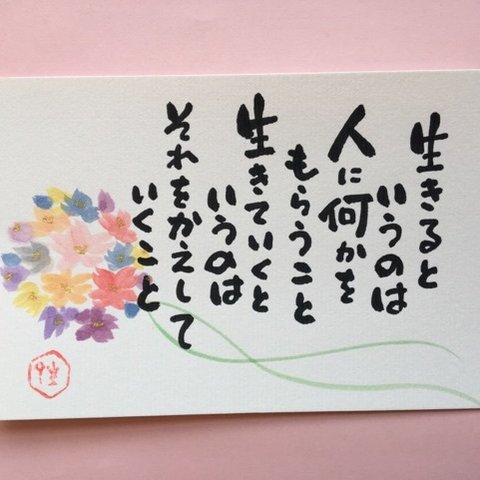 生きると
いうのは
人に何かを
もらうこと
生きていくと
いうのは
それをかえして
いくこと